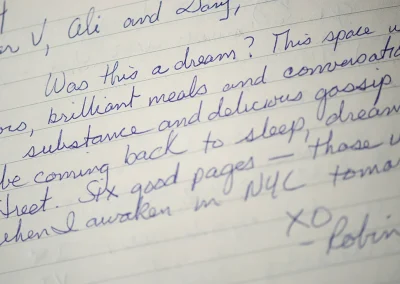 V, Ali and Dany,
Was this a dream? This space
brilliant meals and conversatio
substance and delicious gossip
be coming back to sleep, dream
treet. Six good pages — those
when I awaken in NYC toma
XO
- Robin